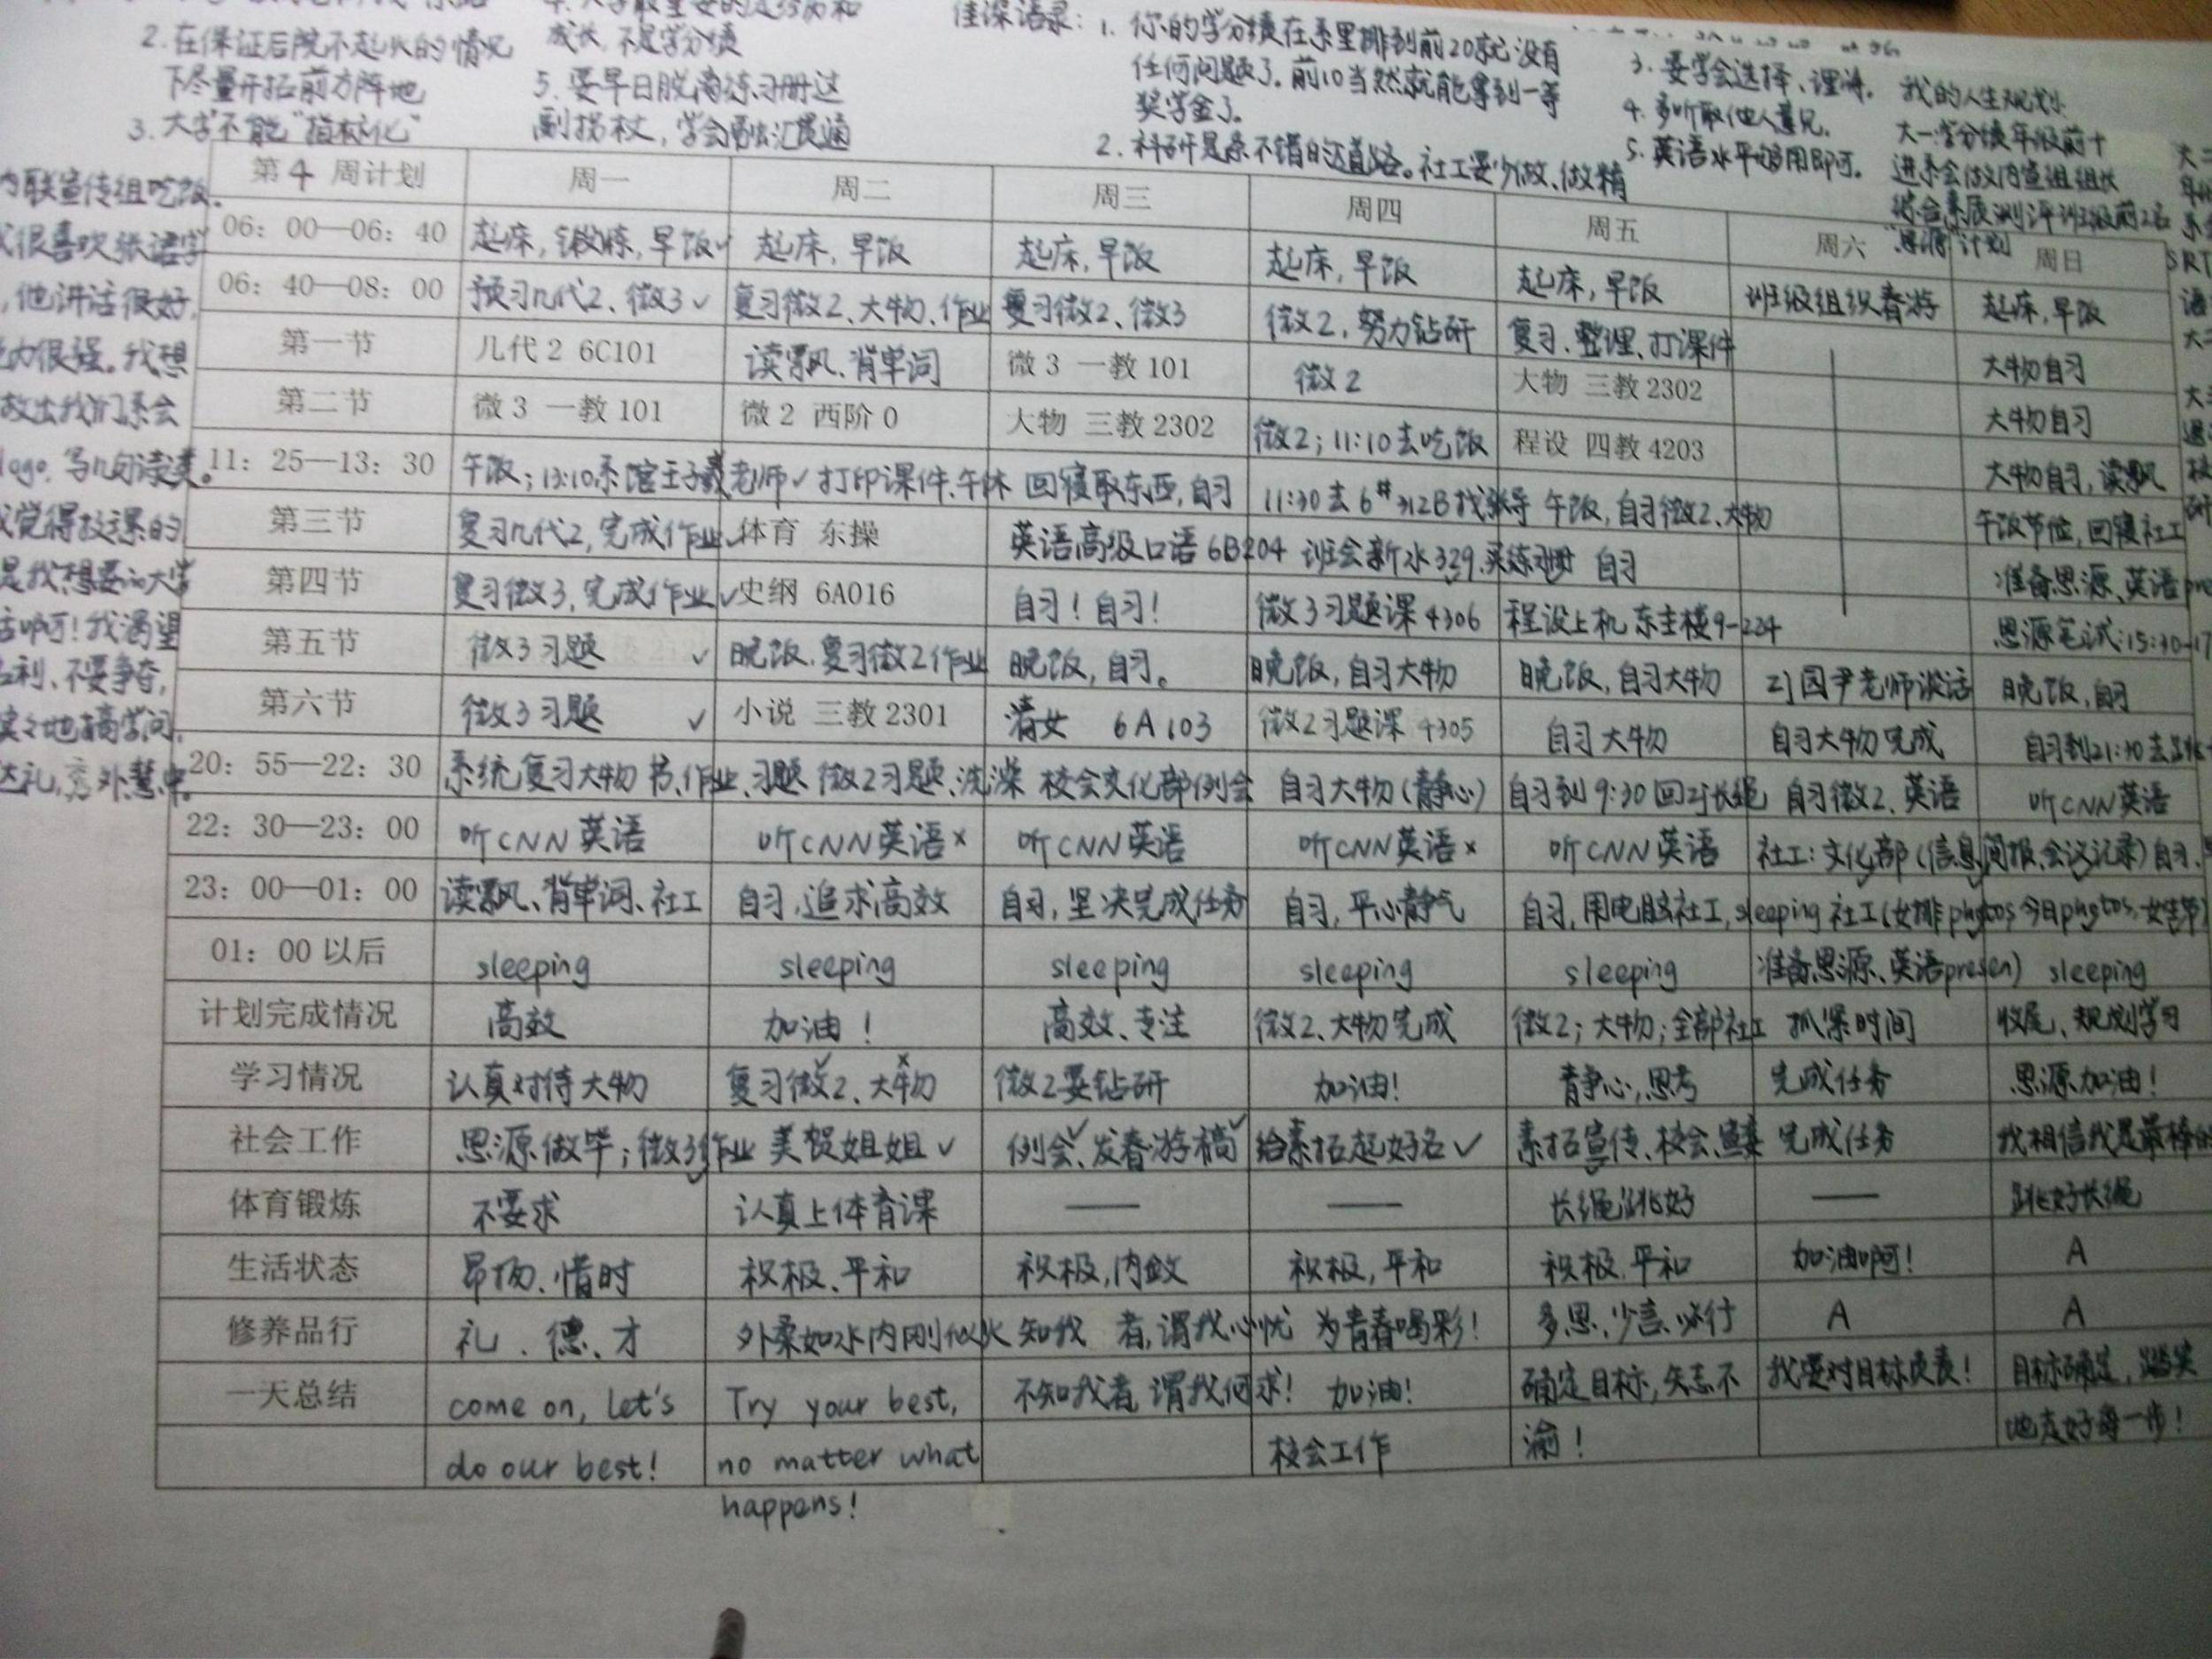 2. 在保证后院不起火的情况
下尽量开拓前方阵地
3. 大学不能"指标化"
成长,不是学分绩
5. 要早日脱离练习册这
副拐杖,学会融汇贯通
佳深语录:1. 你的学分绩在系里排到前20就没有
任何问题了。前10当然就能拿到一等
奖学金了。
2. 科研是条不错的道路。社工要少做、做精
3. 要学会选择、理清.
4. 多听取他人意见.
5. 英语水平够用即可.
我的人生规划:
大一:学分绩年级前十
进系会做内宣组组长
综合素质测评班级前2名
"思源"计划
内联宣传组吃饭.
我很喜欢张语宇
,他讲话很好,
能力很强。我想
做出我们系会
logo,写几句
我觉得
是我想要的大学
生活啊!我渴望
名利、不要争夺,
实实地搞学问.
达礼,秀外慧中.
第4周计划 周一 周二 周三 周四 周五 周六 周日
06:00—06:40 起床,锻炼,早饭✓ 起床,早饭 起床,早饭 起床,早饭 起床,早饭 班级组织春游 起床,早饭
06:40—08:00 预习几代2、微3✓ 复习微2、大物、作业 复习微2、微3 微2,努力钻研 复习、整理、打课件 大物自习
第一节 几代2 6C101 读飘、背单词 微3 一教101 微2 大物 三教2302 大物自习
第二节 微3 一教101 微2 西阶0 大物 三教2302 微2;11:10去吃饭 程设 四教4203 大物自习,读飘
11:25—13:30 午饭;13:10系馆王子羲老师✓ 打印课件、午休 回寝取东西,自习 11:30去6#312B找张导 午饭,自习微2、大物 午饭节俭,回寝社工
第三节 复习几代2,完成作业✓ 体育 东操 英语高级口语6B204 班会新水329.买练习册 自习 准备思源、英语pre
第四节 复习微3,完成作业✓ 史纲 6A016 自习!自习! 微3习题课 4306 程设上机 东主楼9-224 思源笔试:15:30-17
第五节 微3习题 ✓ 晚饭.复习微2作业 晚饭,自习。 晚饭,自习大物 晚饭,自习大物 zj园尹老师谈话 晚饭,自习
第六节 微3习题 ✓ 小说 三教2301 清女 6A103 微2习题课 4305 自习大物 自习大物完成 自习到21:30去跳
20:55—22:30 系统复习大物 书、作业、习题 微2习题、洗澡 校会文化部例会 自习大物(静心) 自习到9:30回zj长绳 自习微2、英语 听CNN英语
22:30—23:00 听CNN英语 听CNN英语× 听CNN英语 听CNN英语× 听CNN英语 社工:文化部(信息简报、会议记录) 自习、
23:00—01:00 读飘、背单词、社工 自习,追求高效 自习,坚决完成任务 自习,平心静气 自习,用电脑社工,sleeping 社工(女排photos今日photos,女生节
01:00以后 sleeping sleeping sleeping sleeping sleeping 准备思源、英语presen) sleeping
计划完成情况 高效 加油! 高效、专注 微2、大物完成 微2;大物;全部社工 抓紧时间 收尾、规划学习
学习情况 认真对待大物 复习微2✓、大物× 微2要钻研 加油! 静心,思考 完成任务 思源加油!
社会工作 思源做毕;微3作业✓ 美贺姐姐✓ 例会✓、发春游稿✓ 给素拓起好名✓ 素拓宣传、校会、 完成任务 我相信我是最棒的
体育锻炼 不要求 认真上体育课 —— —— 长绳跳好 —— 跳好长绳
生活状态 昂扬、惜时 积极、平和 积极,内敛 积极,平和 积极.平和 加油啊! A
修养品行 礼、德、才 外柔如水内刚似火 知我者,谓我心忧 为青春喝彩! 多思、少言、必行 A A
一天总结 come on, let's Try your best, 不知我者,谓我何求! 加油! 确定目标,矢志不 我要对目标负责! 目标确定,踏实
do our best! no matter what 校会工作 渝! 地走好每一步!
happens!